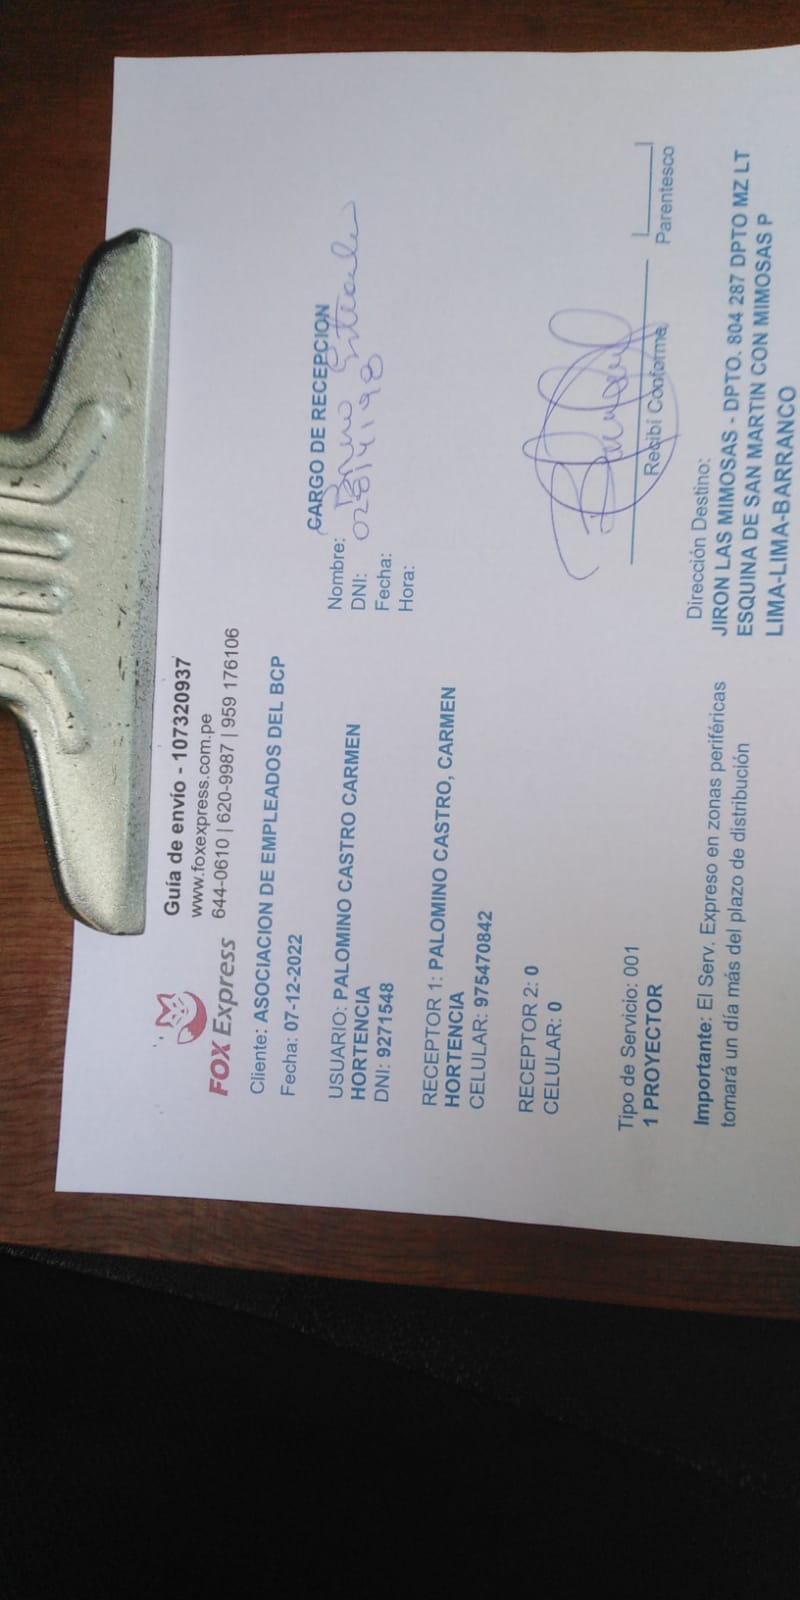 Guía de envío - 107320937
www.foxexpress.com.pe
644-0610 | 620-9987 | 959 176106
FOX Express
Cliente: ASOCIACION DE EMPLEADOS DEL BCP
Fecha: 07-12-2022
USUARIO: PALOMINO CASTRO CARMEN
HORTENCIA
DNI: 9271548
RECEPTOR 1: PALOMINO CASTRO, CARMEN
HORTENCIA
CELULAR: 975470842
RECEPTOR 2: 0
CELULAR: 0
Tipo de Servicio: 001
1 PROYECTOR
Importante: El Serv. Expreso en zonas periféricas
tomará un día más del plazo de distribución
CARGO DE RECEPCION
Nombre:
DNI:
Fecha:
Hora:
Recibí Conforme
Parentesco
Dirección Destino:
JIRON LAS MIMOSAS - DPTO. 804 287 DPTO MZ LT
ESQUINA DE SAN MARTIN CON MIMOSAS P
LIMA-LIMA-BARRANCO